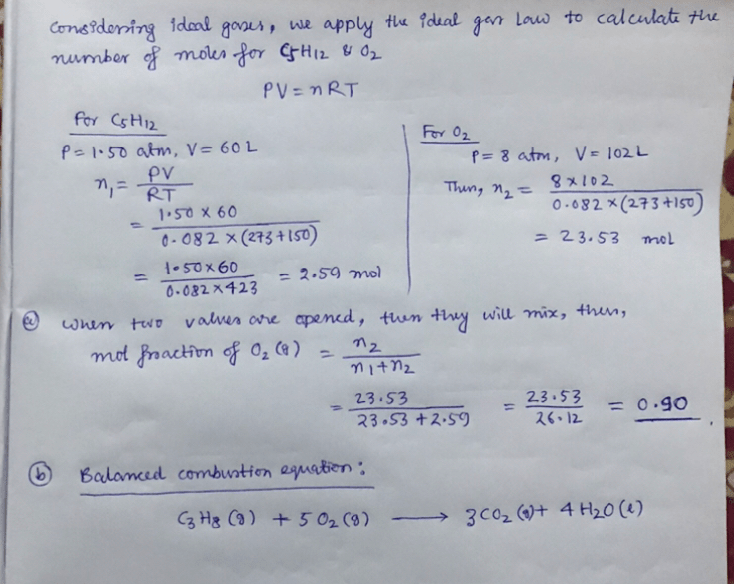 Considering ideal gases, we apply the ideal gas law to calculate the
number of moles for C5H12 & O2
PV = nRT
For C5H12
P = 1.50 atm, V = 60 L
n1 = PV / RT
= 1.50 x 60 / 0.082 x (273+150)
= 1.50x60 / 0.082x423 = 2.59 mol
For O2
P = 8 atm, V = 102 L
Then, n2 = 8x102 / 0.082x(273+150)
= 23.53 mol
(a) when two valves are opened, then they will mix, then,
mol fraction of O2 (g) = n2 / n1+n2
= 23.53 / 23.53 + 2.59 = 23.53 / 26.12 = 0.90
(b) Balanced combustion equation :
C3H8 (g) + 5O2 (g) → 3CO2 (g) + 4H2O (l)